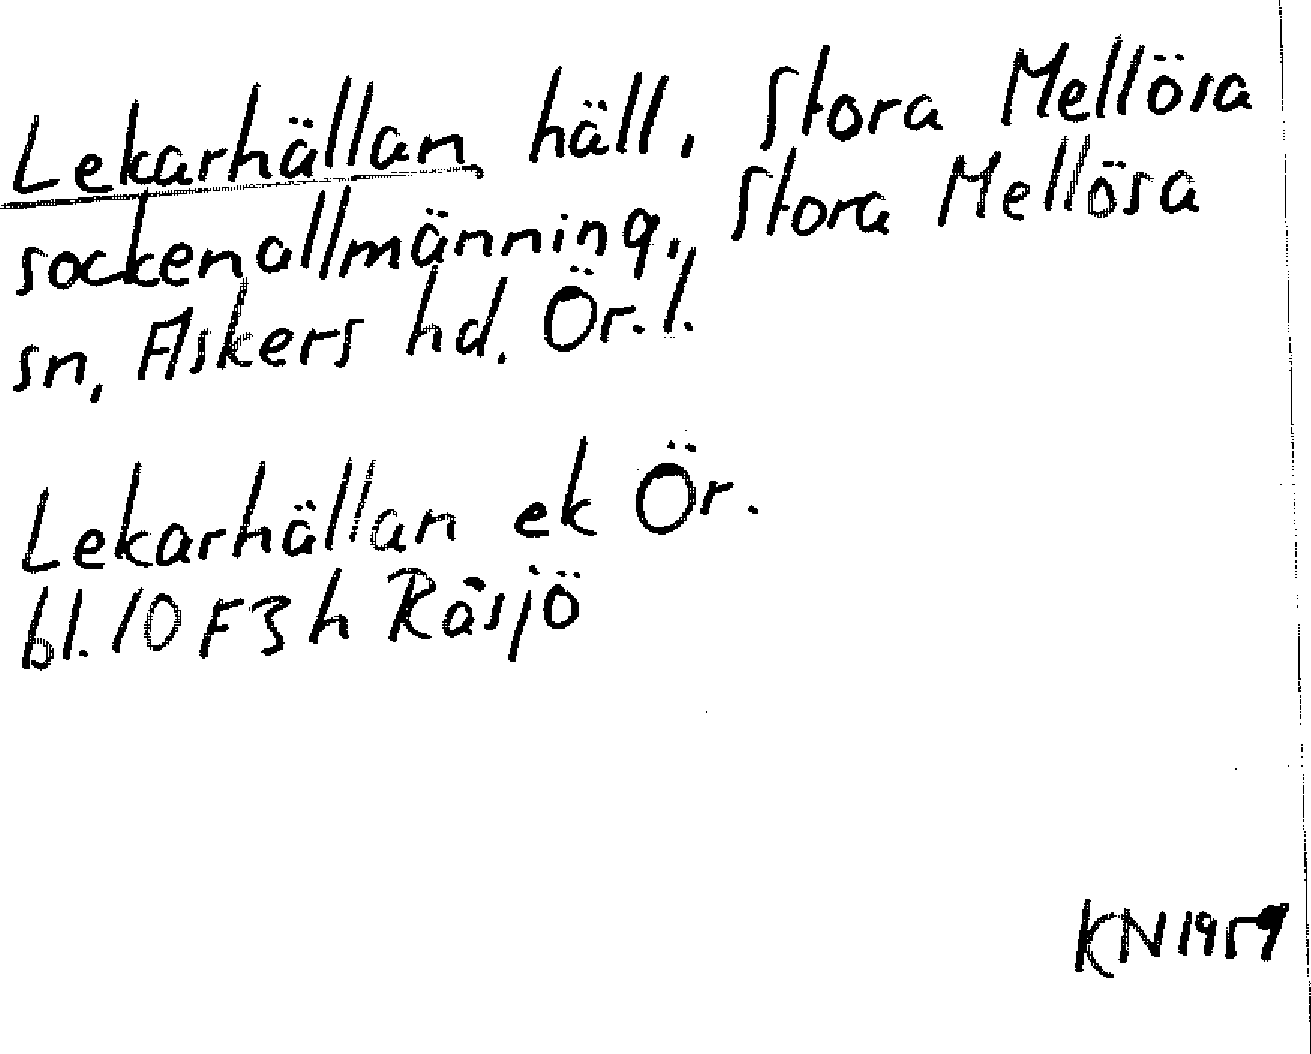 Lekarhällan, häll, Stora Mellösa
sockenallmänning, Stora Mellösa
sn, Askers hd. Ör. l.
Lekarhällan ek Ör.
bl. 10 F 3 h Räsjö
KN 1959